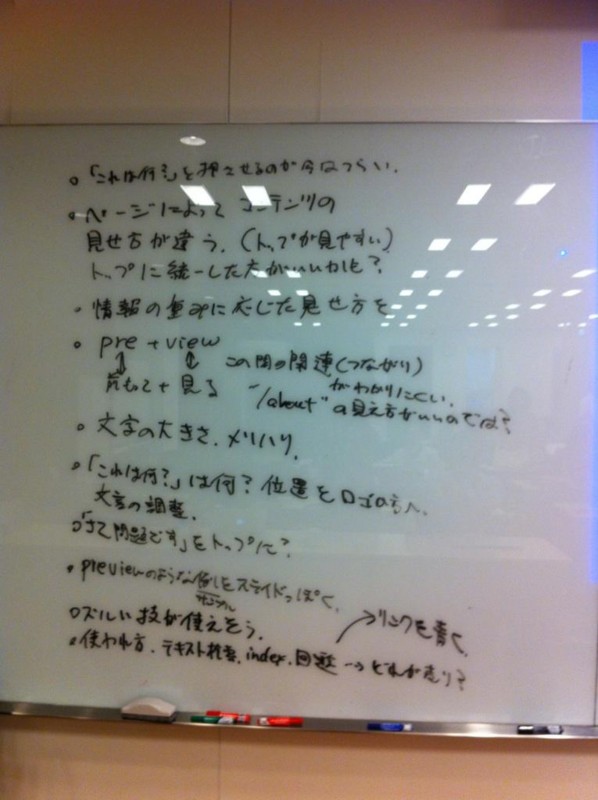 。「これは何?」を押させるのが今はつらい.
・ページによって コンテンツの
見せ方が違う.(トップが見やすい)
トップに統一した方がいいかも?
・情報の重みに応じた見せ方を
・pre + view
この間の関連(つながり)
前もって + 見る
がわかりにくい.
"/about"の見え方がいいのでは?
・文字の大きさ.メリハリ.
。「これは何?」は何? 位置をロゴの方へ.
文言の調整.
。「さて問題です」をトップに?
・previewのような例しをスライドっぽく.
サンプル
。ズルい技が使えそう.
リンクを青く.
・使われ方.テキスト検索.index.回遊 → どれが売り?